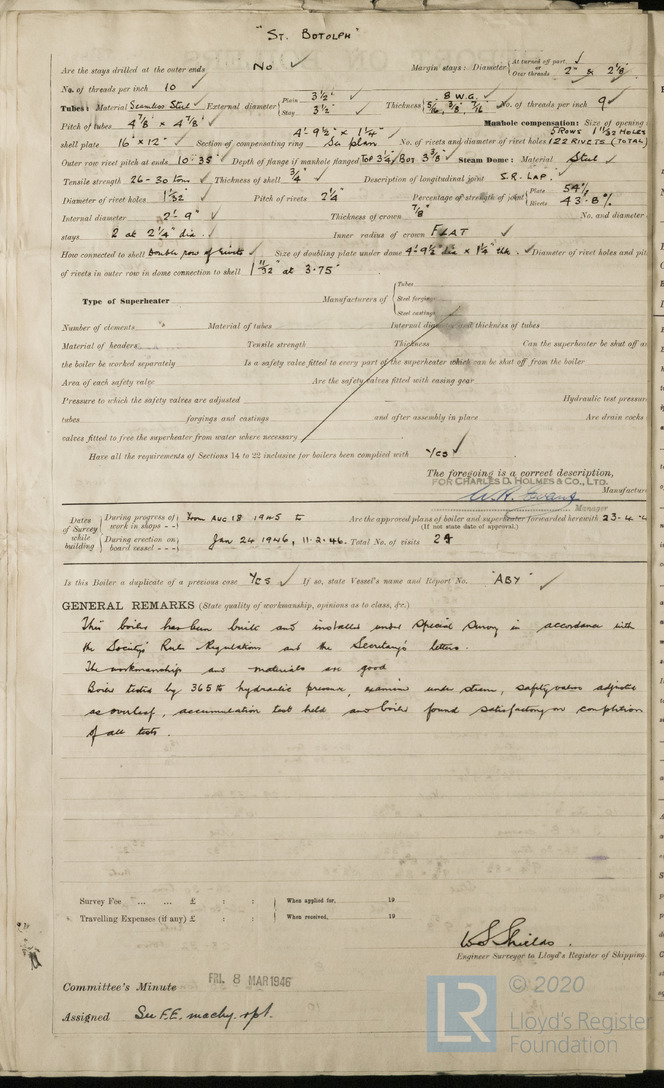 "ST. BOTOLPH"
Are the stays drilled at the outer ends No ✓ Margin stays: Diameter { At turned off part, or Over threads 2" & 2 1/8" ✓
No. of threads per inch 10 ✓
Tubes: Material Seamless Steel ✓ External diameter { Plain 3 1/2" ✓ Stay 3 1/2" ✓ Thickness { 8 W.G. ✓ 5/16, 3/8, 7/16 No. of threads per inch 9 ✓
Pitch of tubes 4 7/8" × 4 7/8" ✓ Manhole compensation: Size of opening
shell plate 16" × 12" ✓ Section of compensating ring 4'. 9 1/2" × 1 1/4" ✓ See plan No. of rivets and diameter of rivet holes 5 ROWS 1 11/32 HOLES 122 RIVETS (TOTAL)
Outer row rivet pitch at ends 10.35" ✓ Depth of flange if manhole flanged TOP 3 1/4/BOT 3 3/8" ✓ Steam Dome: Material Steel ✓
Tensile strength 26-30 tons ✓ Thickness of shell 3/4" ✓ Description of longitudinal joint S.R. LAP. ✓
Diameter of rivet holes 1 1/32" ✓ Pitch of rivets 2 1/4" Percentage of strength of joint { Plate 54% Rivets 43.8%
Internal diameter 2'- 9" Thickness of crown 7/8" No. and diameter
stays 2 at 2 1/4" dia. ✓ Inner radius of crown FLAT ✓
How connected to shell Double row of rivets ✓ Size of doubling plate under dome 4'-9 1/2" dia × 1 1/4" thk. ✓ Diameter of rivet holes and
of rivets in outer row in dome connection to shell 1 11/32" at 3.75"
Type of Superheater Manufacturers of { Tubes Steel forgings Steel castings
Number of elements Material of tubes Internal diameter and thickness of tubes
Material of headers Tensile strength Thickness Can the superheater be shut off
the boiler be worked separately Is a safety valve fitted to every part of the superheater which can be shut off from the boiler
Area of each safety valve Are the safety valves fitted with easing gear
Pressure to which the safety valves are adjusted Hydraulic test pressure
tubes forgings and castings and after assembly in place Are drain cocks
valves fitted to free the superheater from water where necessary
Have all the requirements of Sections 14 to 22 inclusive for boilers been complied with Yes ✓
The foregoing is a correct description,
FOR CHARLES D. HOLMES & CO., LTD.
W.H. Evans Manufacturer
Manager
Dates of Survey while building { During progress of work in shops - - } From AUG 18 1945 to Are the approved plans of boiler and superheater forwarded herewith 23-4-
(If not state date of approval.)
{ During erection on board vessel - - - } Jan 24 1946, 11.2.46. Total No. of visits 24
Is this Boiler a duplicate of a previous case Yes ✓ If so, state Vessel's name and Report No. "ABY" ✓
GENERAL REMARKS (State quality of workmanship, opinions as to class, &c.)
This boiler has been built and installed under Special Survey in accordance with
the Society's Rules Regulations and the Secretary's letters.
The workmanship and materials are good
Boiler tested by 365 lb hydraulic pressure, examined under steam, safety valves adjusted
as overleaf, accumulation test held and boiler found satisfactory on completion
of all tests.
Survey Fee ... ... £ : : When applied for, 19
Travelling Expenses (if any) £ : : When received, 19
W S Shields.
Engineer Surveyor to Lloyd's Register of Shipping.
Committee's Minute FRI. 8 MAR 1946
Assigned See F.E. machy. rpt.
LR © 2020
Lloyd's Register
Foundation